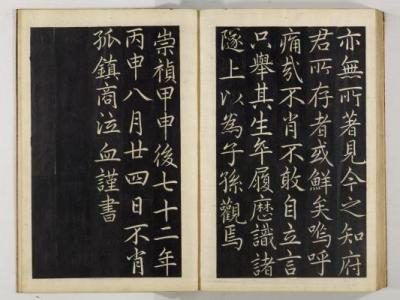 亦無所著見今之知府
君所存者或鮮矣嗚呼
痛哉不肖不敢自立言
只舉其生年履歷識諸
隧上以為子孫觀焉
崇禎甲申後七十二年
丙申八月廿四日不肖
孤鎮商泣血謹書